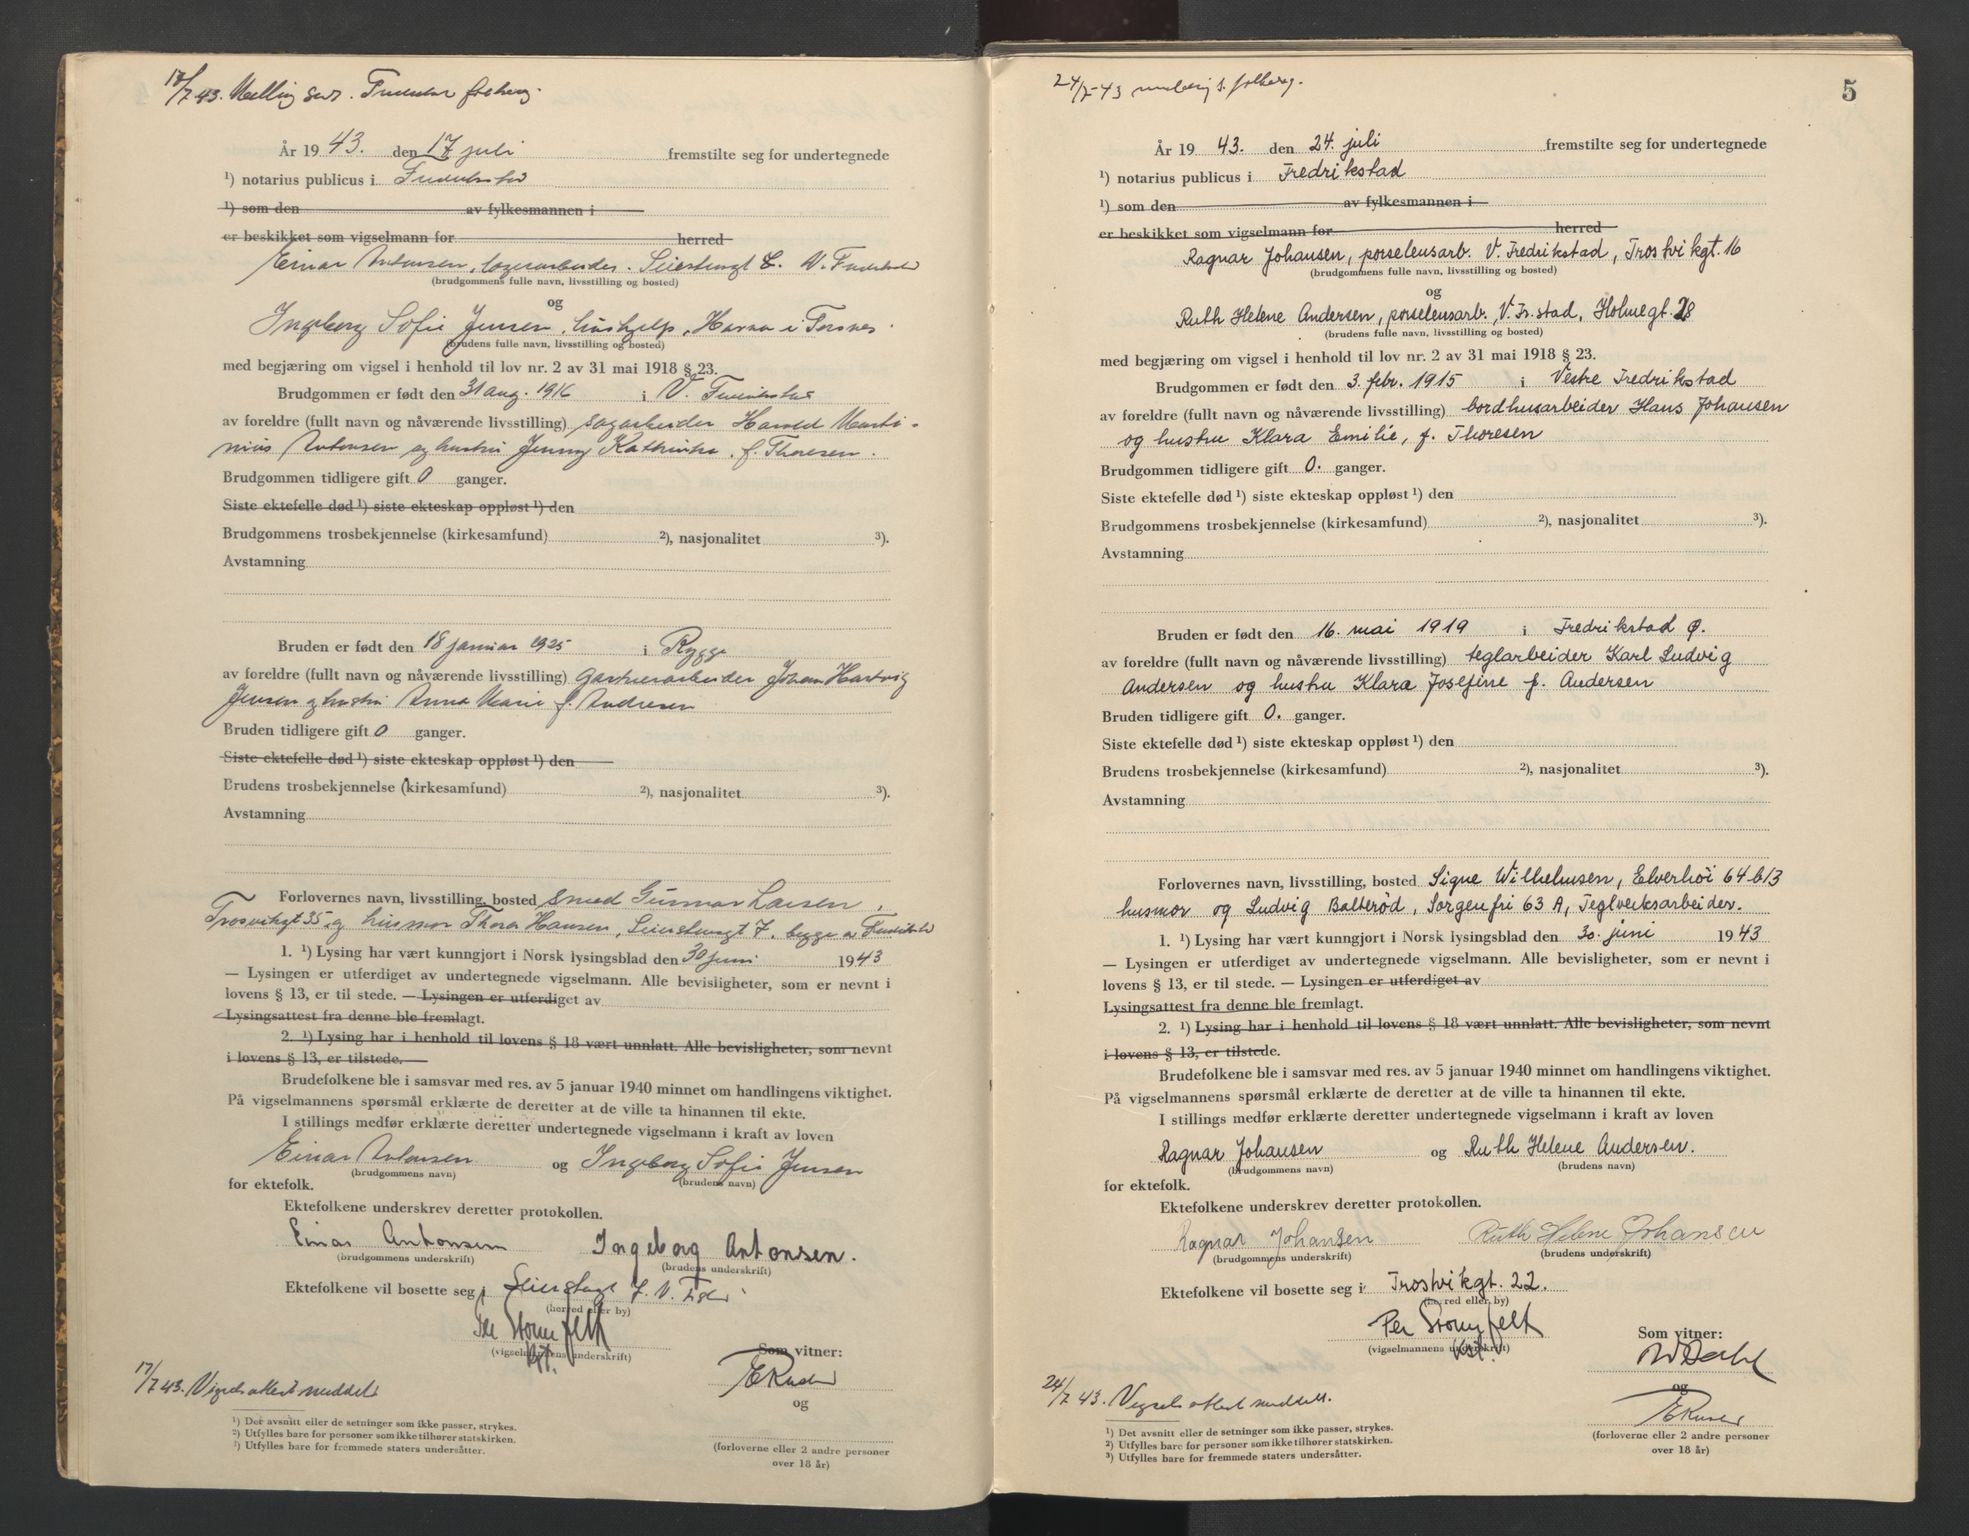 17/7 43. Melding sendt. Fredrikstad folkereg.
År 1943. den 17 juli fremstilte seg for undertegnede
¹) notarius publicus i Fredrikstad
¹) som den av fylkesmannen i
er beskikket som vigselmann for herred
Einar Antonsen, lagerarbeider. Seierstengt 7. V. Fredrikstad
(brudgommens fulle navn, livsstilling og bosted)
og
Ingeborg Sofie Jensen, hushjelp, Havna i Torsnes.
(brudens fulle navn, livsstilling og bosted)
med begjæring om vigsel i henhold til lov nr. 2 av 31 mai 1918 § 23.
Brudgommen er født den 31 aug. 1916 i V. Fredrikstad
av foreldre (fullt navn og nåværende livsstilling) sagarbeider Harald Marti-
nius Antonsen og hustru Jenny Kathrinke, f. Thoresen.
Brudgommen tidligere gift 0 ganger.
Siste ektefelle død ¹) siste ekteskap oppløst ¹) den
Brudgommens trosbekjennelse (kirkesamfund) ²), nasjonalitet ³).
Avstamning
Bruden er født den 18 januar 1925 i Rygge
av foreldre (fullt navn og nåværende livsstilling) gartnerarbeider Johan Hartvig
Jensen og hustru Anna Marie f. Andresen
Bruden tidligere gift 0 ganger.
Siste ektefelle død ¹) siste ekteskap oppløst ¹) den
Brudens trosbekjennelse (kirkesamfund) ²), nasjonalitet ³).
Avstamning
Forlovernes navn, livsstilling, bosted Smed Gunnar Larsen,
Trosvikgt 35. og husmor Thora Hansen, Seierstengt 7, begge v. Fredrikstad
1. ¹) Lysing har vært kunngjort i Norsk lysingsblad den 30 juni 1943
— Lysingen er utferdiget av undertegnede vigselmann. Alle bevisligheter, som er nevnt i
lovens § 13, er til stede. — Lysingen er utferdiget av
Lysingsattest fra denne ble fremlagt.
2. ¹) Lysing har i henhold til lovens § 18 vært unnlatt. Alle bevisligheter, som nevnt
i lovens § 13, er tilstede.
Brudefolkene ble i samsvar med res. av 5 januar 1940 minnet om handlingens viktighet.
På vigselmannens spørsmål erklærte de deretter at de ville ta hinannen til ekte.
I stillings medfør erklærte deretter undertegnede vigselmann i kraft av loven
Einar Antonsen og Ingeborg Sofie Jensen
(brudgommens navn) (brudens navn)
for ektefolk.
Ektefolkene underskrev deretter protokollen.
Einar Antonsen Ingeborg Antonsen.
(brudgommens underskrift) (brudens underskrift)
Ektefolkene vil bosette seg i Seierstengt 7. V. F.stad
(herred eller by)
Per Stormfelt
(vigselmannens underskrift)
kst.
Som vitner:
E Ruder
og
17/7 43. Vigselsattest meddelt
¹) Det avsnitt eller de setninger som ikke passer, strykes.
²) Utfylles bare for personer som ikke tilhører statskirken.
³) Utfylles bare for fremmede staters undersåtter.
(forloverne eller 2 andre personer
over 18 år)
24/7-43 melding s. folkereg.
5
År 1943. den 24. juli fremstilte seg for undertegnede
¹) notarius publicus i Fredrikstad
¹) som den av fylkesmannen i
er beskikket som vigselmann for herred
Ragnar Johansen, porselensarb. V. Fredrikstad, Trosvikgt. 16
(brudgommens fulle navn, livsstilling og bosted)
og
Ruth Helene Andersen, porselensarb., V. Fr.stad, Holmegt. 28
(brudens fulle navn, livsstilling og bosted)
med begjæring om vigsel i henhold til lov nr. 2 av 31 mai 1918 § 23.
Brudgommen er født den 3. febr. 1915 i Vestre Fredrikstad
av foreldre (fullt navn og nåværende livsstilling) bordhusarbeider Hans Johansen
og hustru Klara Emilie, f. Thoresen
Brudgommen tidligere gift 0. ganger.
Siste ektefelle død ¹) siste ekteskap oppløst ¹) den
Brudgommens trosbekjennelse (kirkesamfund) ²), nasjonalitet ³).
Avstamning
Bruden er født den 16. mai 1919 i Fredrikstad Ø.
av foreldre (fullt navn og nåværende livsstilling) teglarbeider Karl Ludvig
Andersen og hustru Klara Josefine f. Andersen
Bruden tidligere gift 0. ganger.
Siste ektefelle død ¹) siste ekteskap oppløst ¹) den
Brudens trosbekjennelse (kirkesamfund) ²), nasjonalitet ³).
Avstamning
Forlovernes navn, livsstilling, bosted Signe Wilhelmsen, Elverhöi 64 b13
husmor og Ludvig Balteröd, Sorgenfri 63 A, Teglverksarbeider.
1. ¹) Lysing har vært kunngjort i Norsk lysingsblad den 30. juni 1943
— Lysingen er utferdiget av undertegnede vigselmann. Alle bevisligheter, som er nevnt i
lovens § 13, er til stede. — Lysingen er utferdiget av
Lysingsattest fra denne ble fremlagt.
2. ¹) Lysing har i henhold til lovens § 18 vært unnlatt. Alle bevisligheter, som nevnt
i lovens § 13, er tilstede.
Brudefolkene ble i samsvar med res. av 5 januar 1940 minnet om handlingens viktighet.
På vigselmannens spørsmål erklærte de deretter at de ville ta hinannen til ekte.
I stillings medfør erklærte deretter undertegnede vigselmann i kraft av loven
Ragnar Johansen og Ruth Helene Andersen.
(brudgommens navn) (brudens navn)
for ektefolk.
Ektefolkene underskrev deretter protokollen.
Ragnar Johansen Ruth Helene Johansen
(brudgommens underskrift) (brudens underskrift)
Ektefolkene vil bosette seg i Trosvikgt. 22.
(herred eller by)
Per Stormfelt
(vigselmannens underskrift)
kst.
Som vitner:
W Dahl
og
E Ruder
24/7 43. Vigselsattest meddelt.
¹) Det avsnitt eller de setninger som ikke passer, strykes.
²) Utfylles bare for personer som ikke tilhører statskirken.
³) Utfylles bare for fremmede staters undersåtter.
(forloverne eller 2 andre personer
over 18 år)